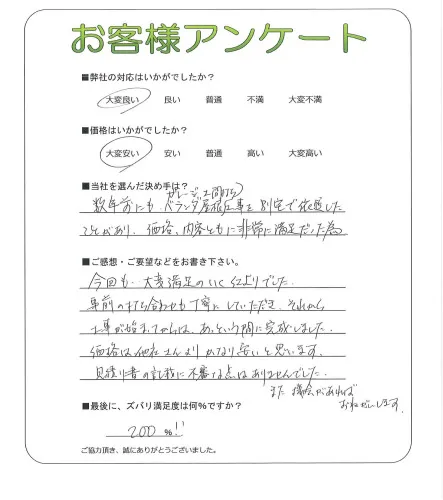 お客様アンケート
■弊社の対応はいかがでしたか?
大変良い 良い 普通 不満 大変不満
■価格はいかがでしたか?
大変安い 安い 普通 高い 大変高い
■当社を選んだ決め手は?
ガレージ土間打ち
数年前にも ベランダ屋根工事を別宅で依頼した
ことがあり、価格、内容ともに非常に満足だった為
■ご感想・ご要望などをお書き下さい。
今回も 大変満足のいく仕上りでした。
事前の打ち合わせも丁寧にしていただき、それから
工事が始まってからは、あっという間に完成しました。
価格は他社さんよりかなり安いと思います。
見積り書の記載に不審な点はありませんでした。
また機会があれば
おねがいします。
■最後に、ズバリ満足度は何%ですか?
200 %!!
ご協力頂き、誠にありがとうございました。